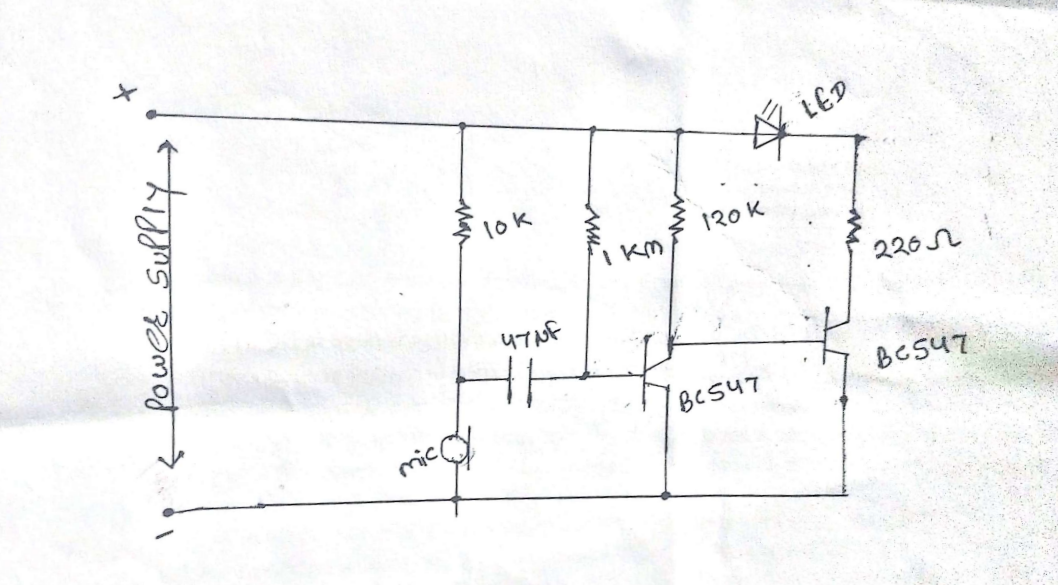 +
LED
POWER SUPPLY
10K
1 KM
120K
220Ω
47NF
BC547
BC547
mic
-